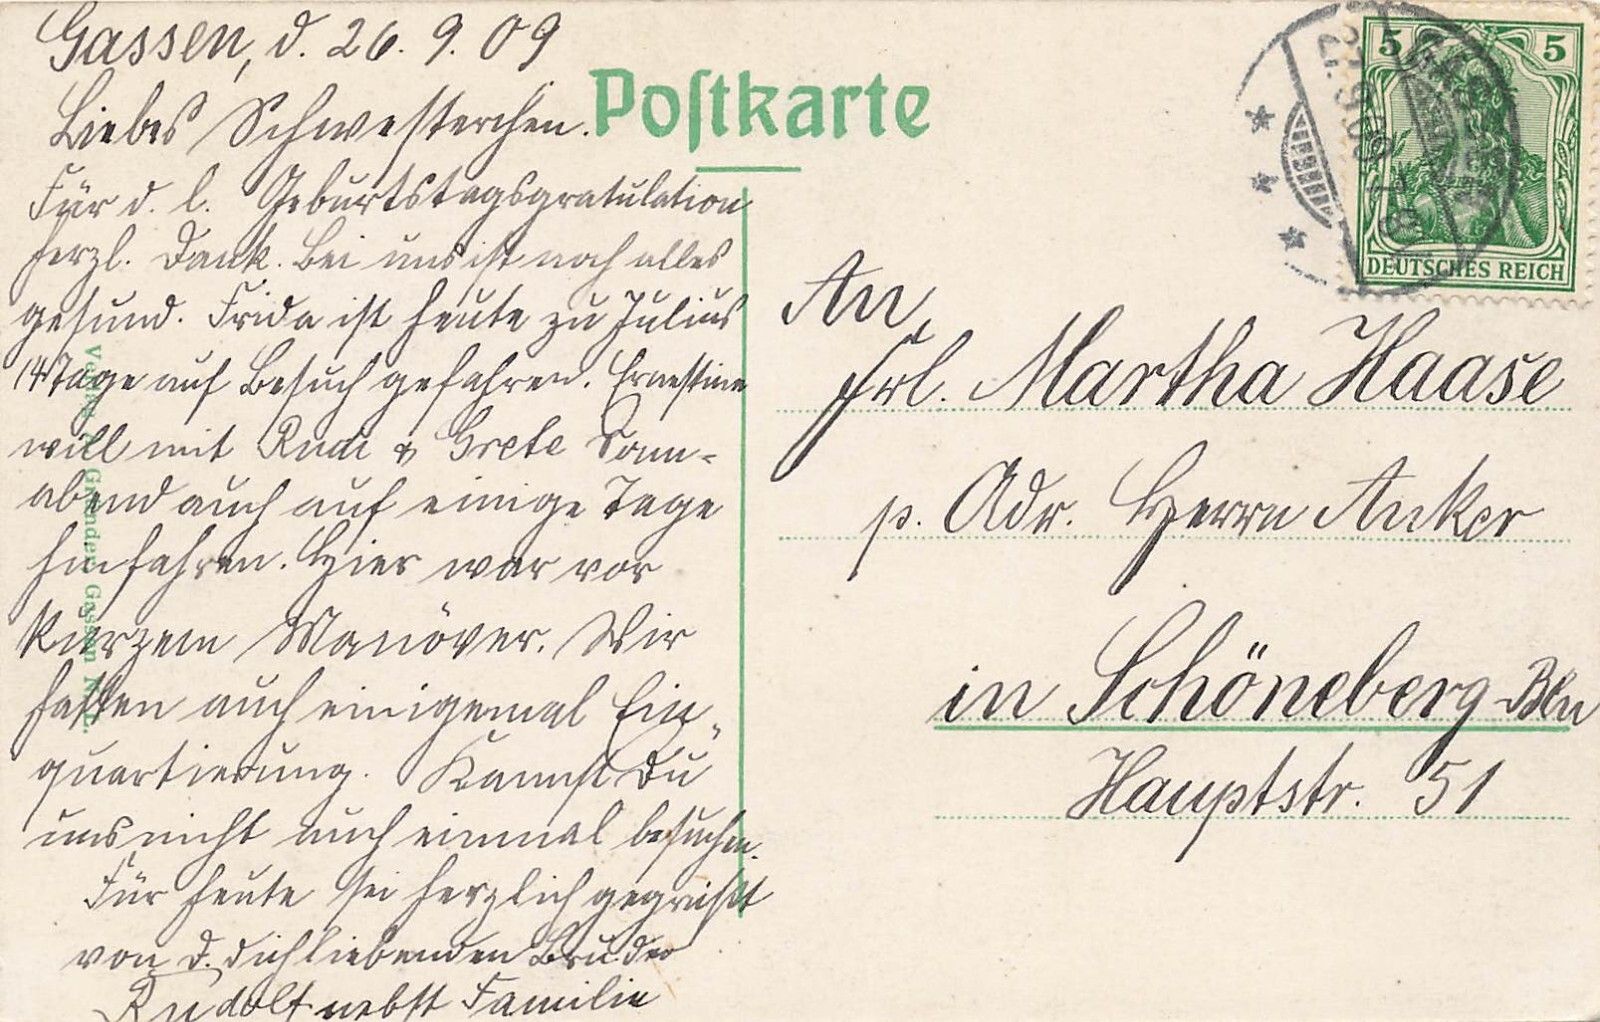 Gassen, d. 26. 9. 09
Liebes Schwesterchen.
Für d. l. Geburtstagsgratulation
herzl. Dank. Bei uns ist noch alles
gesund. Frida ist heute zu Julius
14 Tage auf Besuch gefahren. Ernestine
will mit Rudi & Grete Sonn-
abend auch auf einige Tage
hinfahren. Hier war vor
kurzem Manöver. Wir
hatten auch einigemal Ein-
quartierung. Kannst Du
uns nicht auch einmal besuchen.
Für heute sei herzlich gegrüßt
von d. dichliebenden Bruder
Rudolf nebst Familie
Postkarte
5 5
DEUTSCHES REICH
27.9.09
An
Frl. Martha Haase
p. Adr. Herrn Anker
in Schöneberg-Bln
Hauptstr. 51
Gassen N.-L.